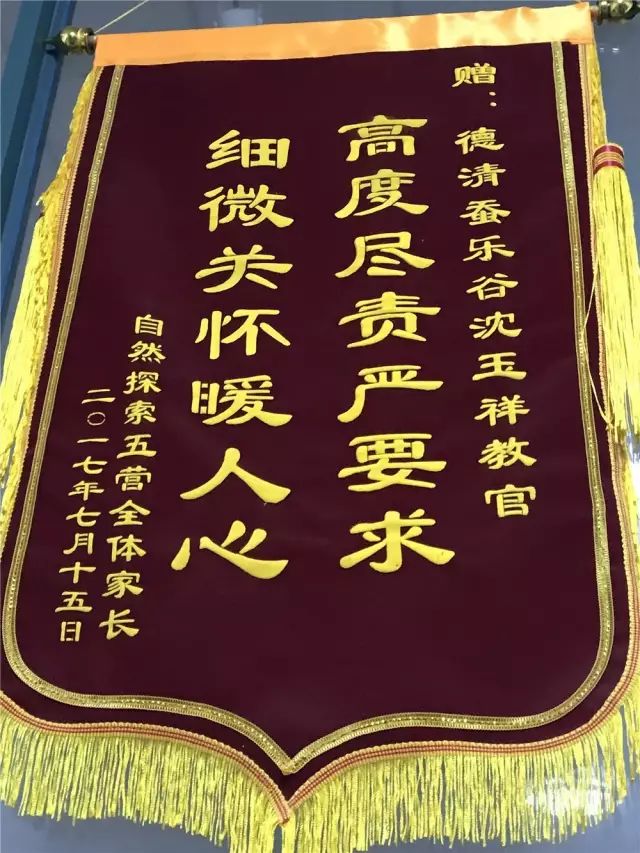 赠：德清蚕乐谷沈玉祥教官
高度尽责严要求
细微关怀暖人心
自然探索五营全体家长
二〇一七年七月十五日